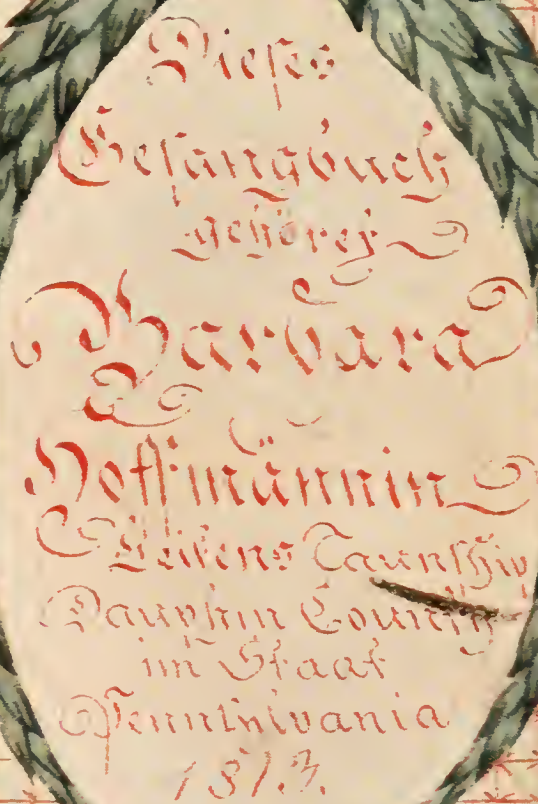 Dieses
Gesangbuch
gehöret
Barbara
Hoffmännin
Leikens Taunschip
Dauphin County
im Staat
Pennsylvania
1813.